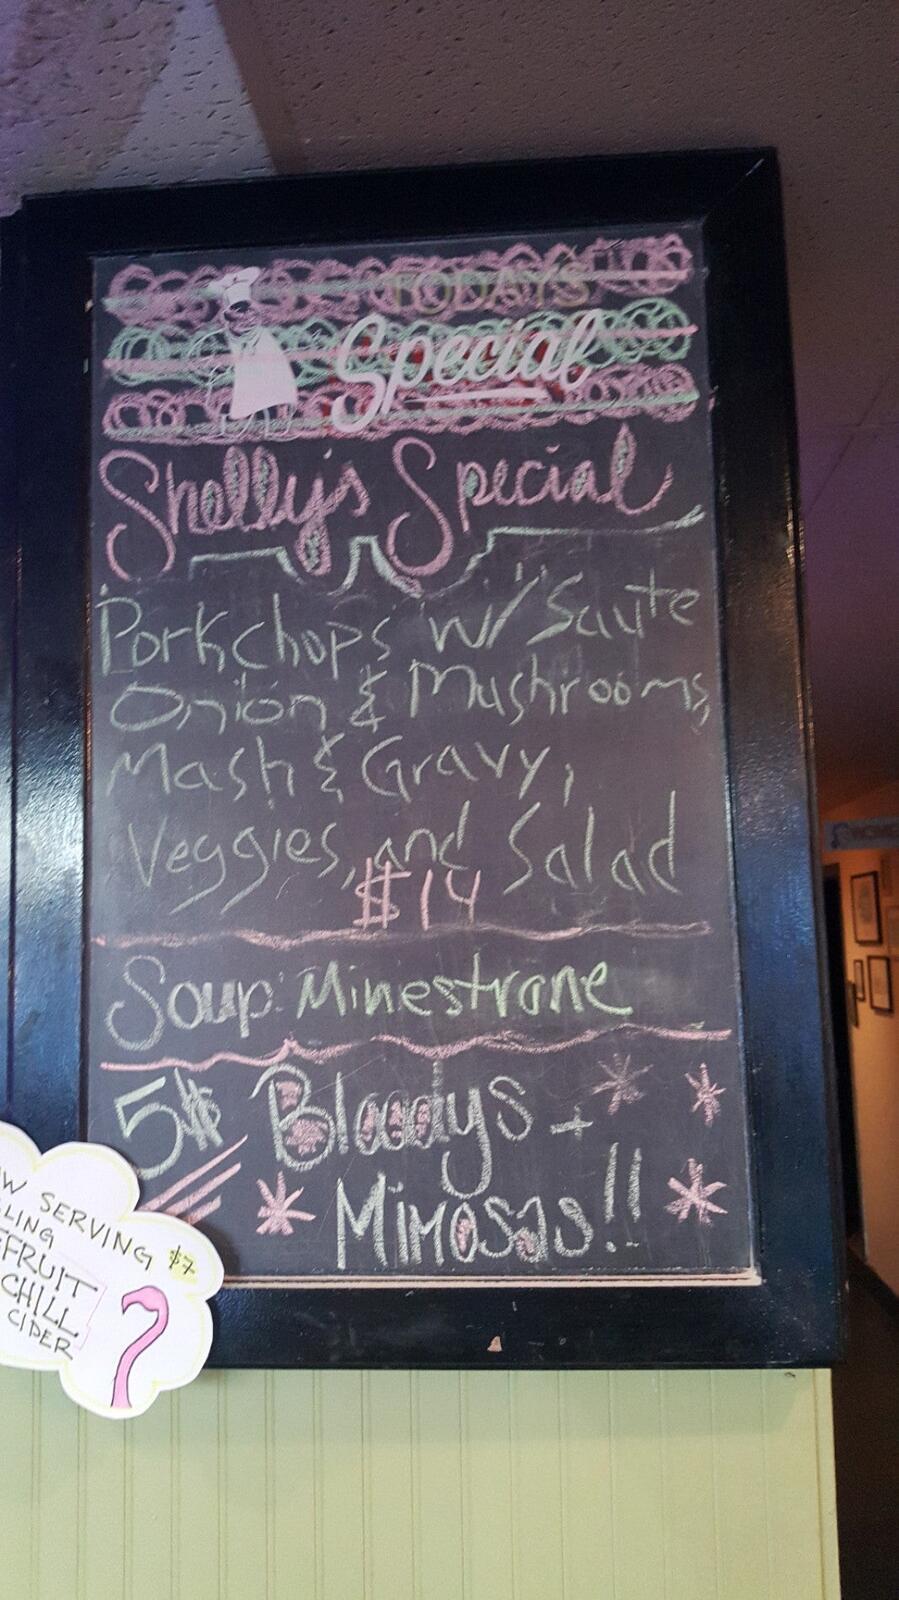 TODAYS
Special
Shelly's Special
Porkchops w/ Saute
Onion & Mushrooms,
Mash & Gravy,
Veggies, and Salad
$14
Soup: Minestrone
5$ Bloodys +
Mimosas!!
SERVING $7
CHILL
CIDER